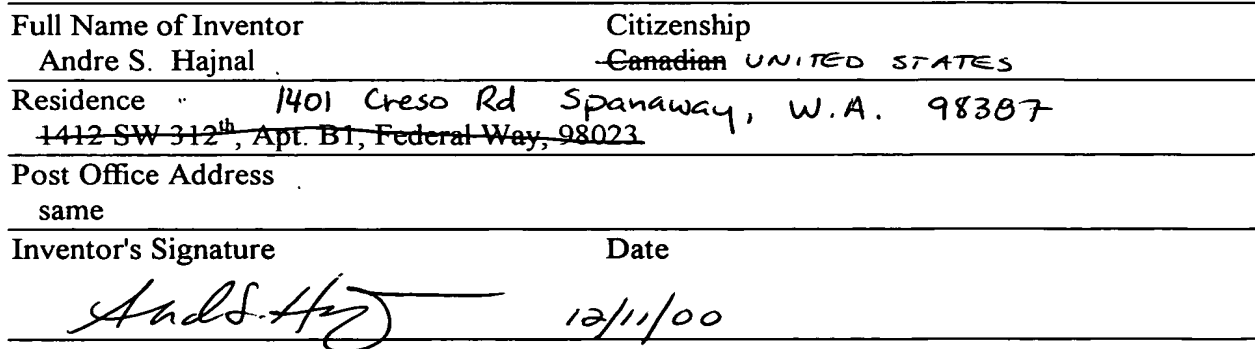 Full Name of Inventor Citizenship
Andre S. Hajnal Canadian UNITED STATES
Residence 1401 Creso Rd Spanaway, W.A. 98387
1412 SW 312th, Apt. B1, Federal Way, 98023
Post Office Address
same
Inventor's Signature Date
12/11/00